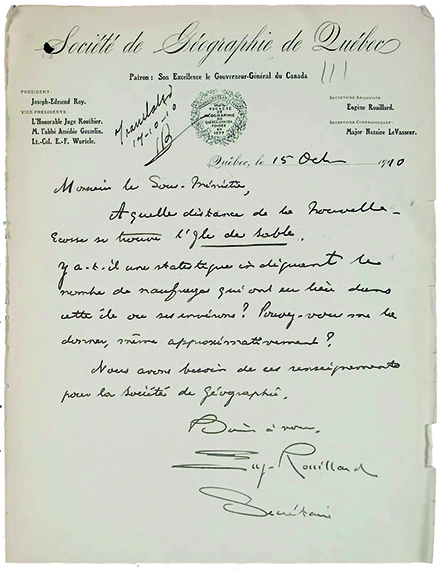 Société de Géographie de Québec
Patron: Son Excellence le Gouverneur-Général du Canada
111
PRÉSIDENT:
Joseph-Edmond Roy.
VICE-PRÉSIDENTS:
L'Honorable Juge Routhier.
M. l'abbé Amédée Gosselin.
Lt.-Col. E.-F. Wurtele.
Translated
17-10-10
SOCIÉTÉ
DE
GÉOGRAPHIE
DE
QUÉBEC, CANADA
FONDÉE
EN
1877
SECRÉTAIRE-ARCHIVISTE:
Eugène Rouillard.
SECRÉTAIRE-CORRESPONDANT:
Major Nazaire LeVasseur.
Québec, le 15 Oct 1910
Monsieur le Sous-Ministre,
A quelle distance de la Nouvelle-
Ecosse se trouve l'Ile de Sable.
Y a-t-il une statistique indiquant le
nombre de naufrages qui ont eu lieu dans
cette île ou ses environs? Pouvez-vous me la
donner, même approximativement?
Nous avons besoin de ces renseignements
pour la Société de Géographie.
Bien à vous.
Eug. Rouillard
Secrétaire